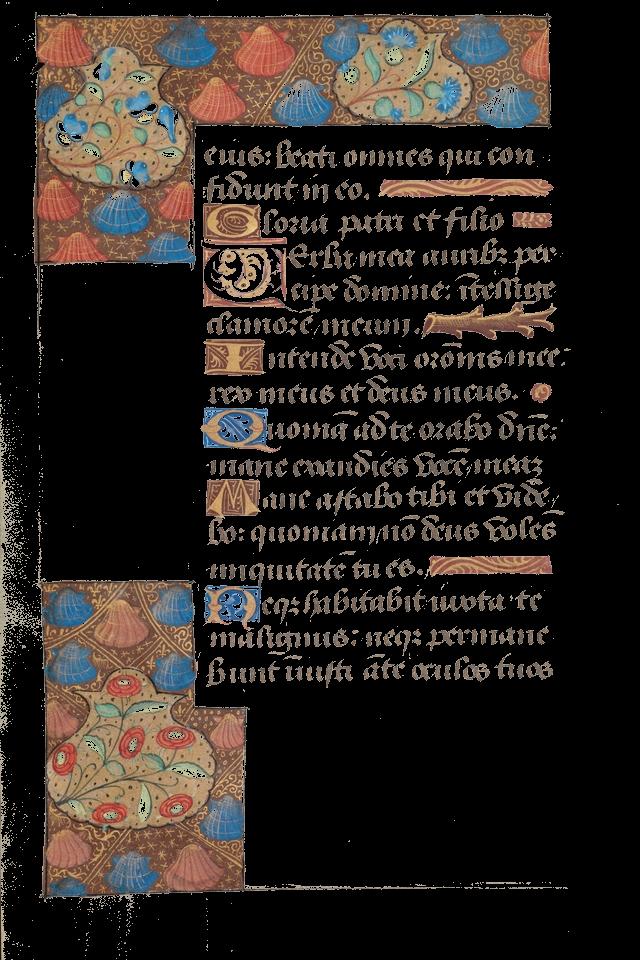 eius: beati omnes qui con
fidunt in eo.
Gloria patri et filio
Verba mea auribꝫ per
cipe domine: ītellige
clamorē meum.
Intende voci orōnis mee:
rex meus et deus meus.
Quoniā ad te orabo dn̄e:
mane exaudies vocē meaꝫ
Mane astabo tibi et vide
bo: quoniam nō deus volēs
iniquitatē tu es.
Neqꝫ habitabit iuxta te
malignus: neqꝫ permane
bunt iniusti āte oculos tuos